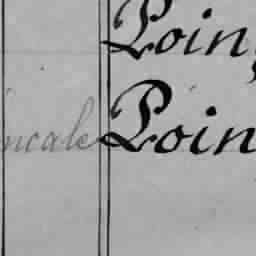 Poin
ncale Poin